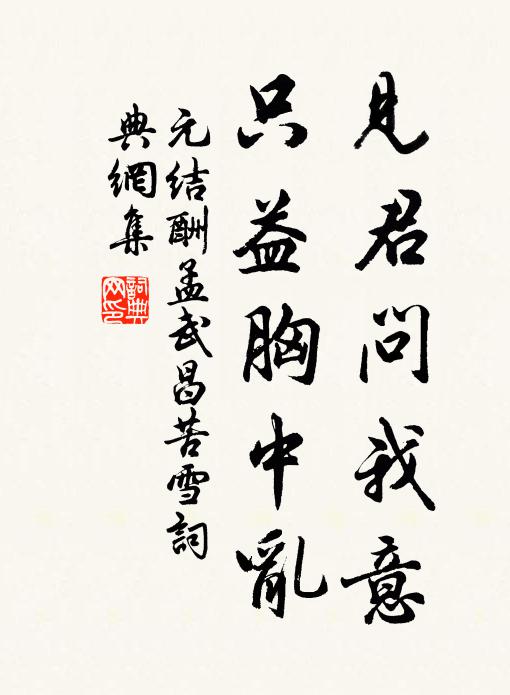 見君問我意
只益胸中亂
元結酬孟武昌苦雪詞
典網集
詞典
网印